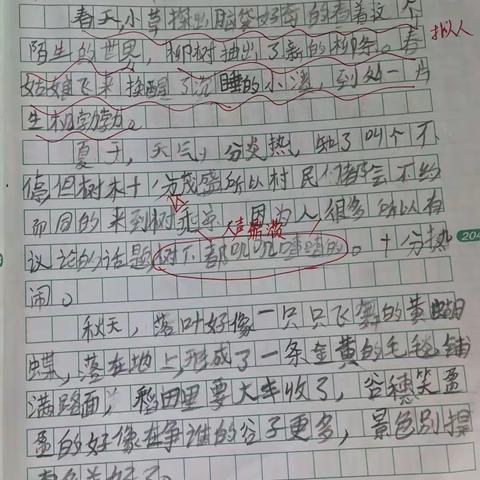 春天,小草探出脑袋好奇的看着这个
拟人
陌生的世界,柳树抽出了新的柳条。春
姑娘飞来换醒了沉睡的小溪,到处一片
生机勃勃。
夏天,天气十分炎热,知了叫个不
停但树木十分茂盛所以村民们都会不约
而同的来到树下乘凉。因为人很多所以有
人声鼎沸
议论的话题,树下都叽叽喳喳的。十分热
204
闹。
秋天,落叶好像一只只飞舞的黄蝴
蝶,落在地上,形成了一条金黄的毛毯铺
满路面,稻田里要大丰收了,谷穗笑盈
盈的好像在争谁的谷子更多,景色别提
有多美好了。